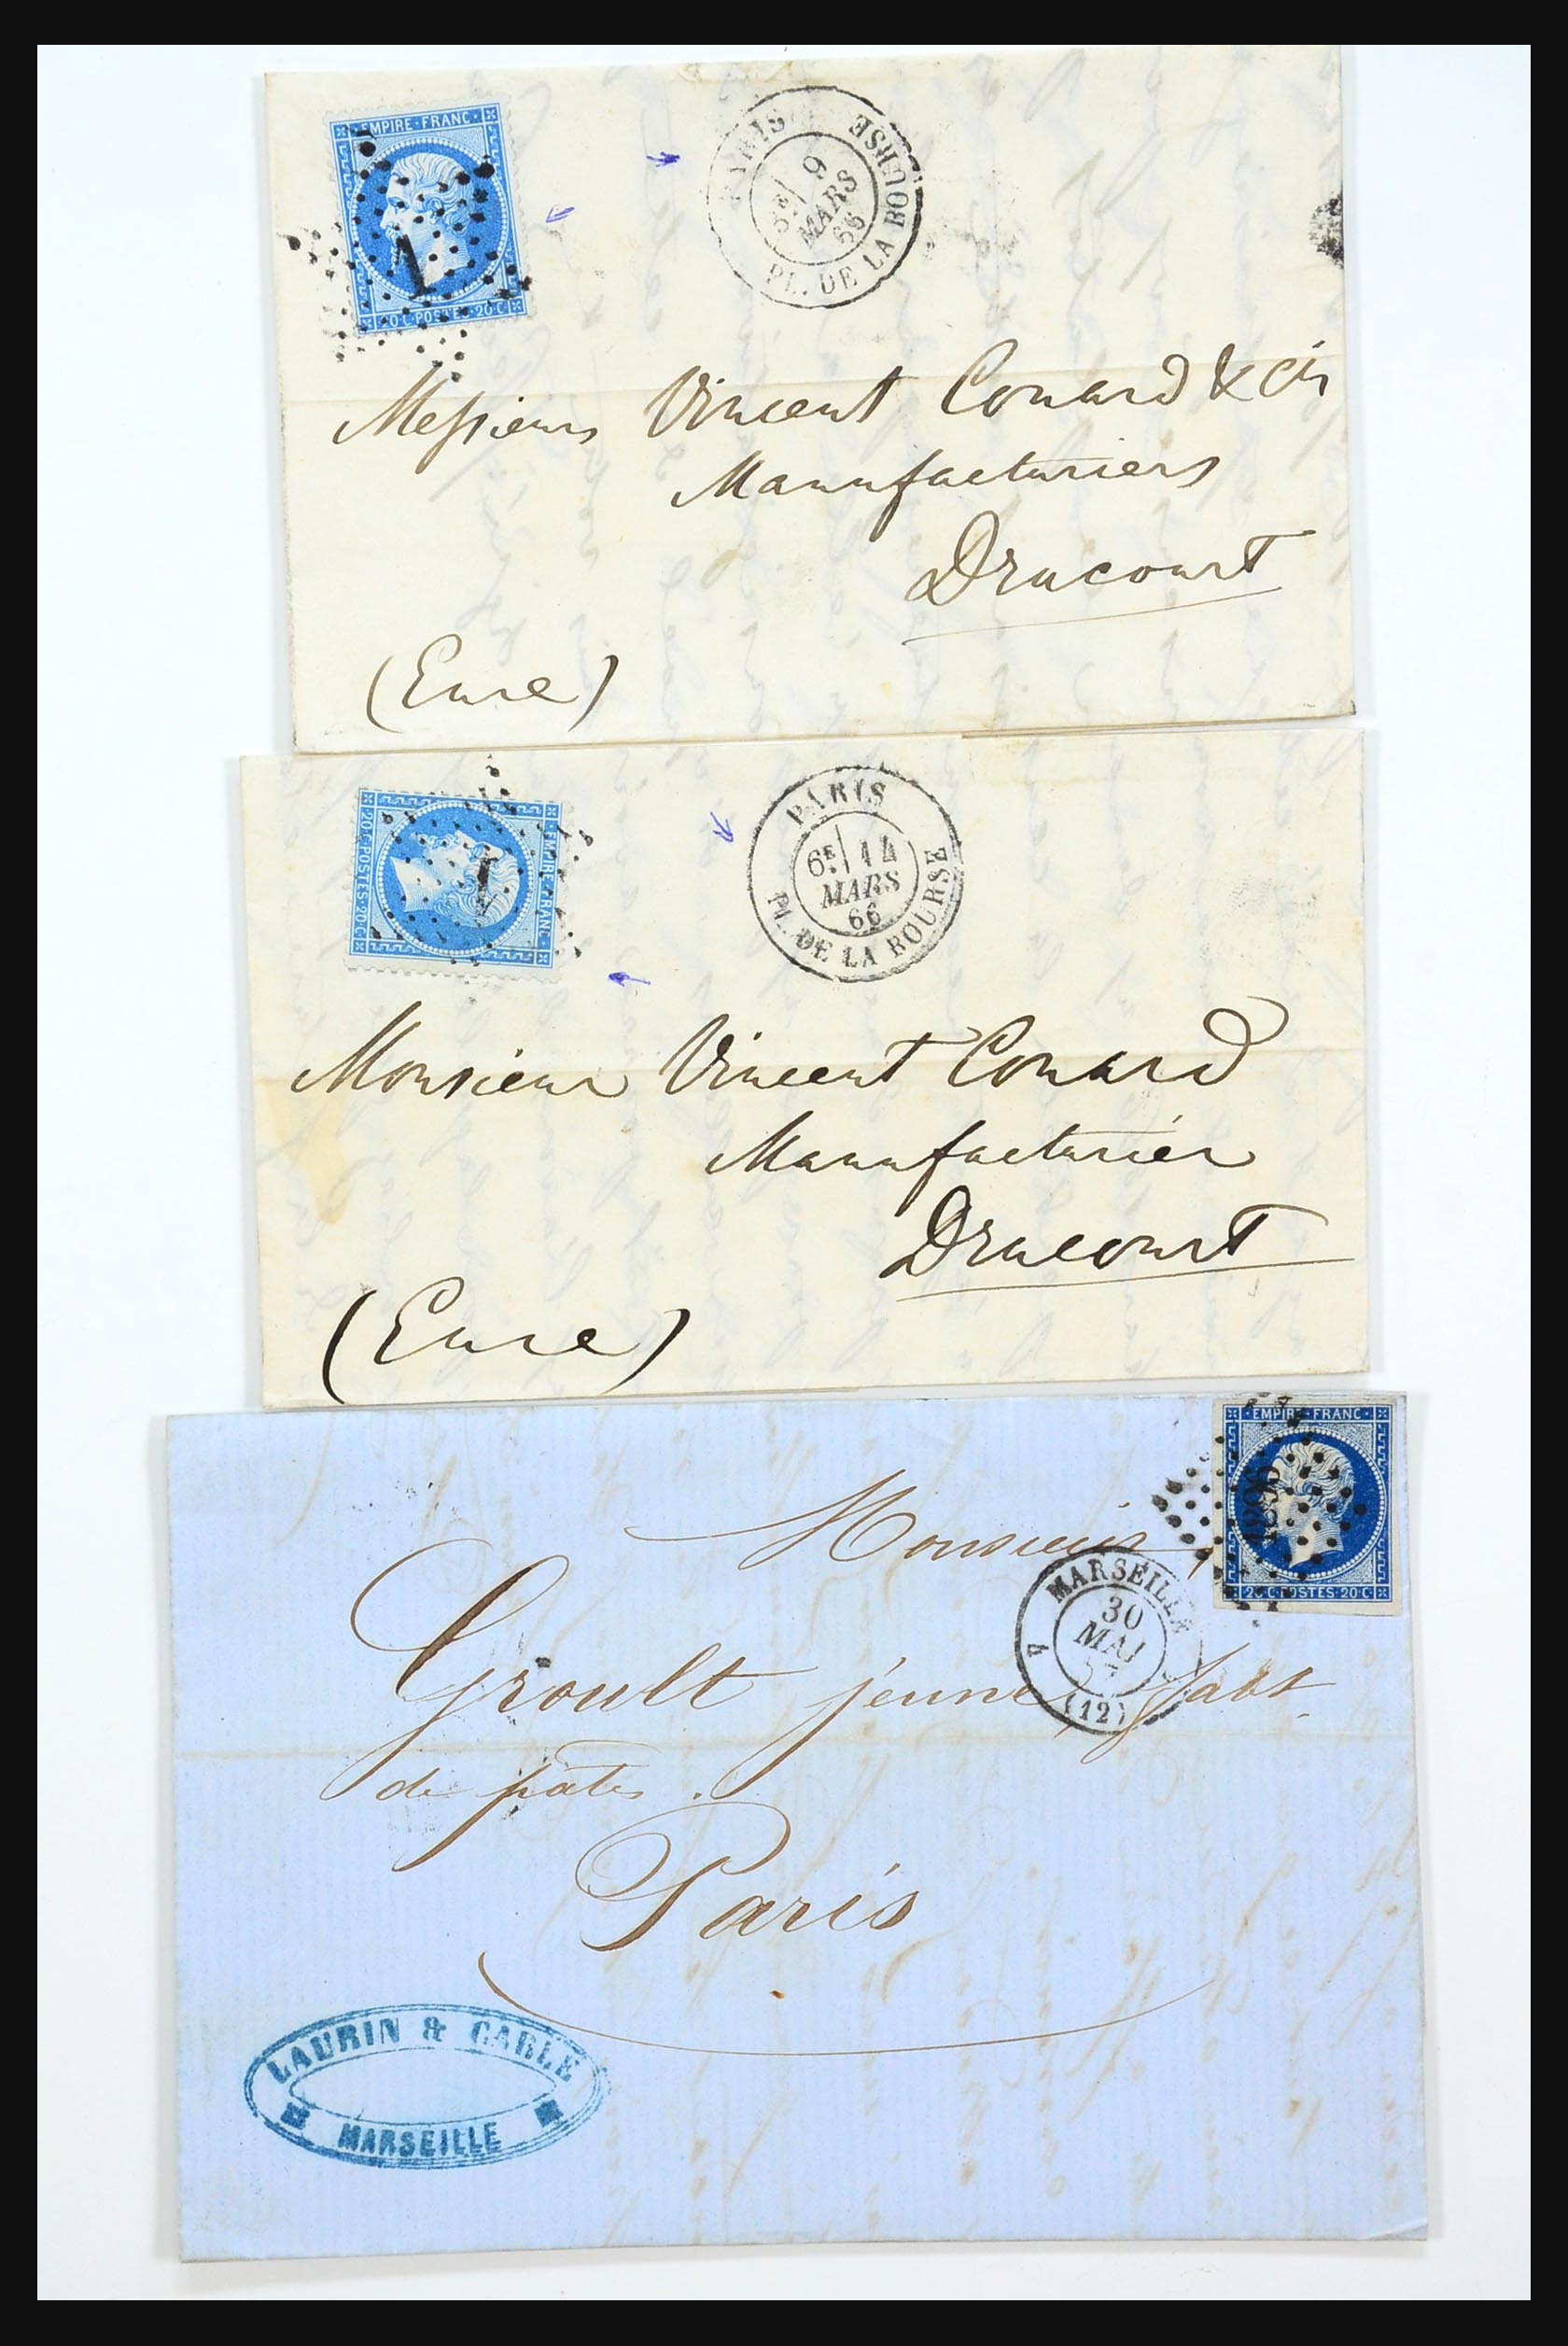 EMPIRE·FRANC·
1
20·C·POSTES·20·C
PARIS
9
MARS
66
PL. DE LA BOURSE
Messieurs Vincent Conard & Cie
Manufacturiers
Drucourt
(Eure)
EMPIRE·FRANC·
1
20·C·POSTES·20·C
PARIS
6E 14
MARS
66
PL. DE LA BOURSE
Monsieur Vincent Conard
Manufacturier
Drucourt
(Eure)
EMPIRE·FRANC·
1896
20·C·POSTES·20·C
Monsieur
MARSEILLE
30
MAI
57
(12)
Groult jeune, fabt
de pâtes.
Paris
LAURIN & CARLE
MARSEILLE